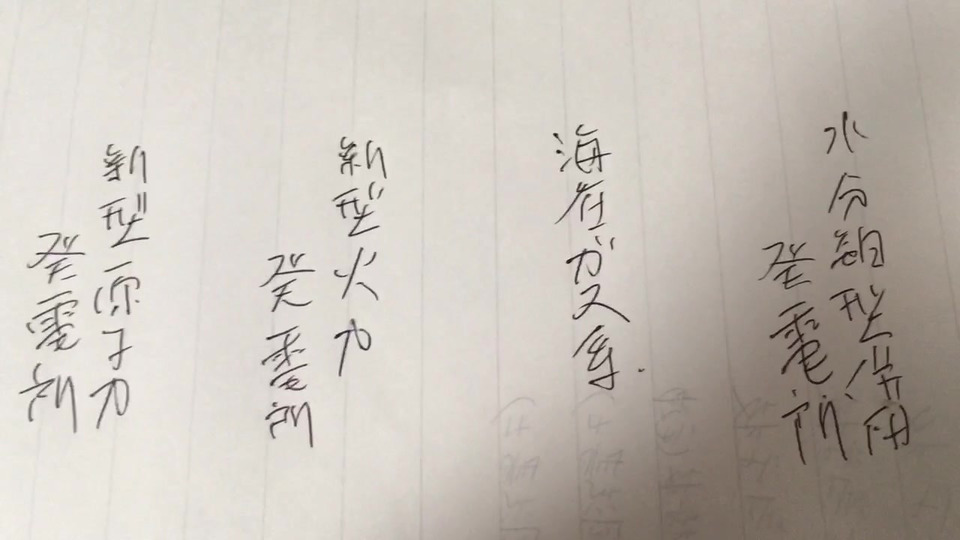 水分組型併用
発電所
海底ガス車.
新型火力
発電所
新型原子力
発電所